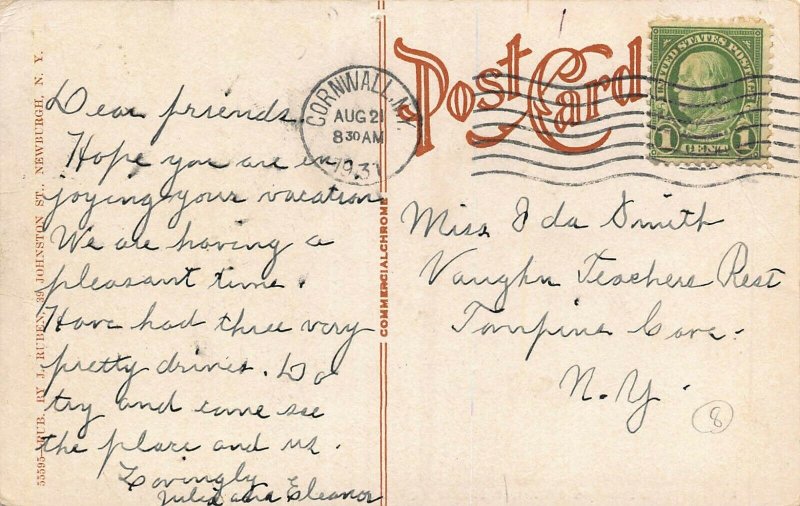 Post Card
CORNWALL, N.Y.
AUG 21
8 30 AM
1931
UNITED STATES POSTAGE
1 CENT 1
Dear friends,
Hope you are en
joying your vacation
We are having a
pleasant time.
Have had three very
pretty drives. Do
try and come see
the place and us.
Lovingly
Julia and Eleanor
Miss Ida Smith
Vaughn Teachers Rest
Tompkins Cove.
N.Y.
8
COMMERCIALCHROME
55595 PUB. BY J. RUBEN, 39 JOHNSTON ST., NEWBURGH, N. Y.